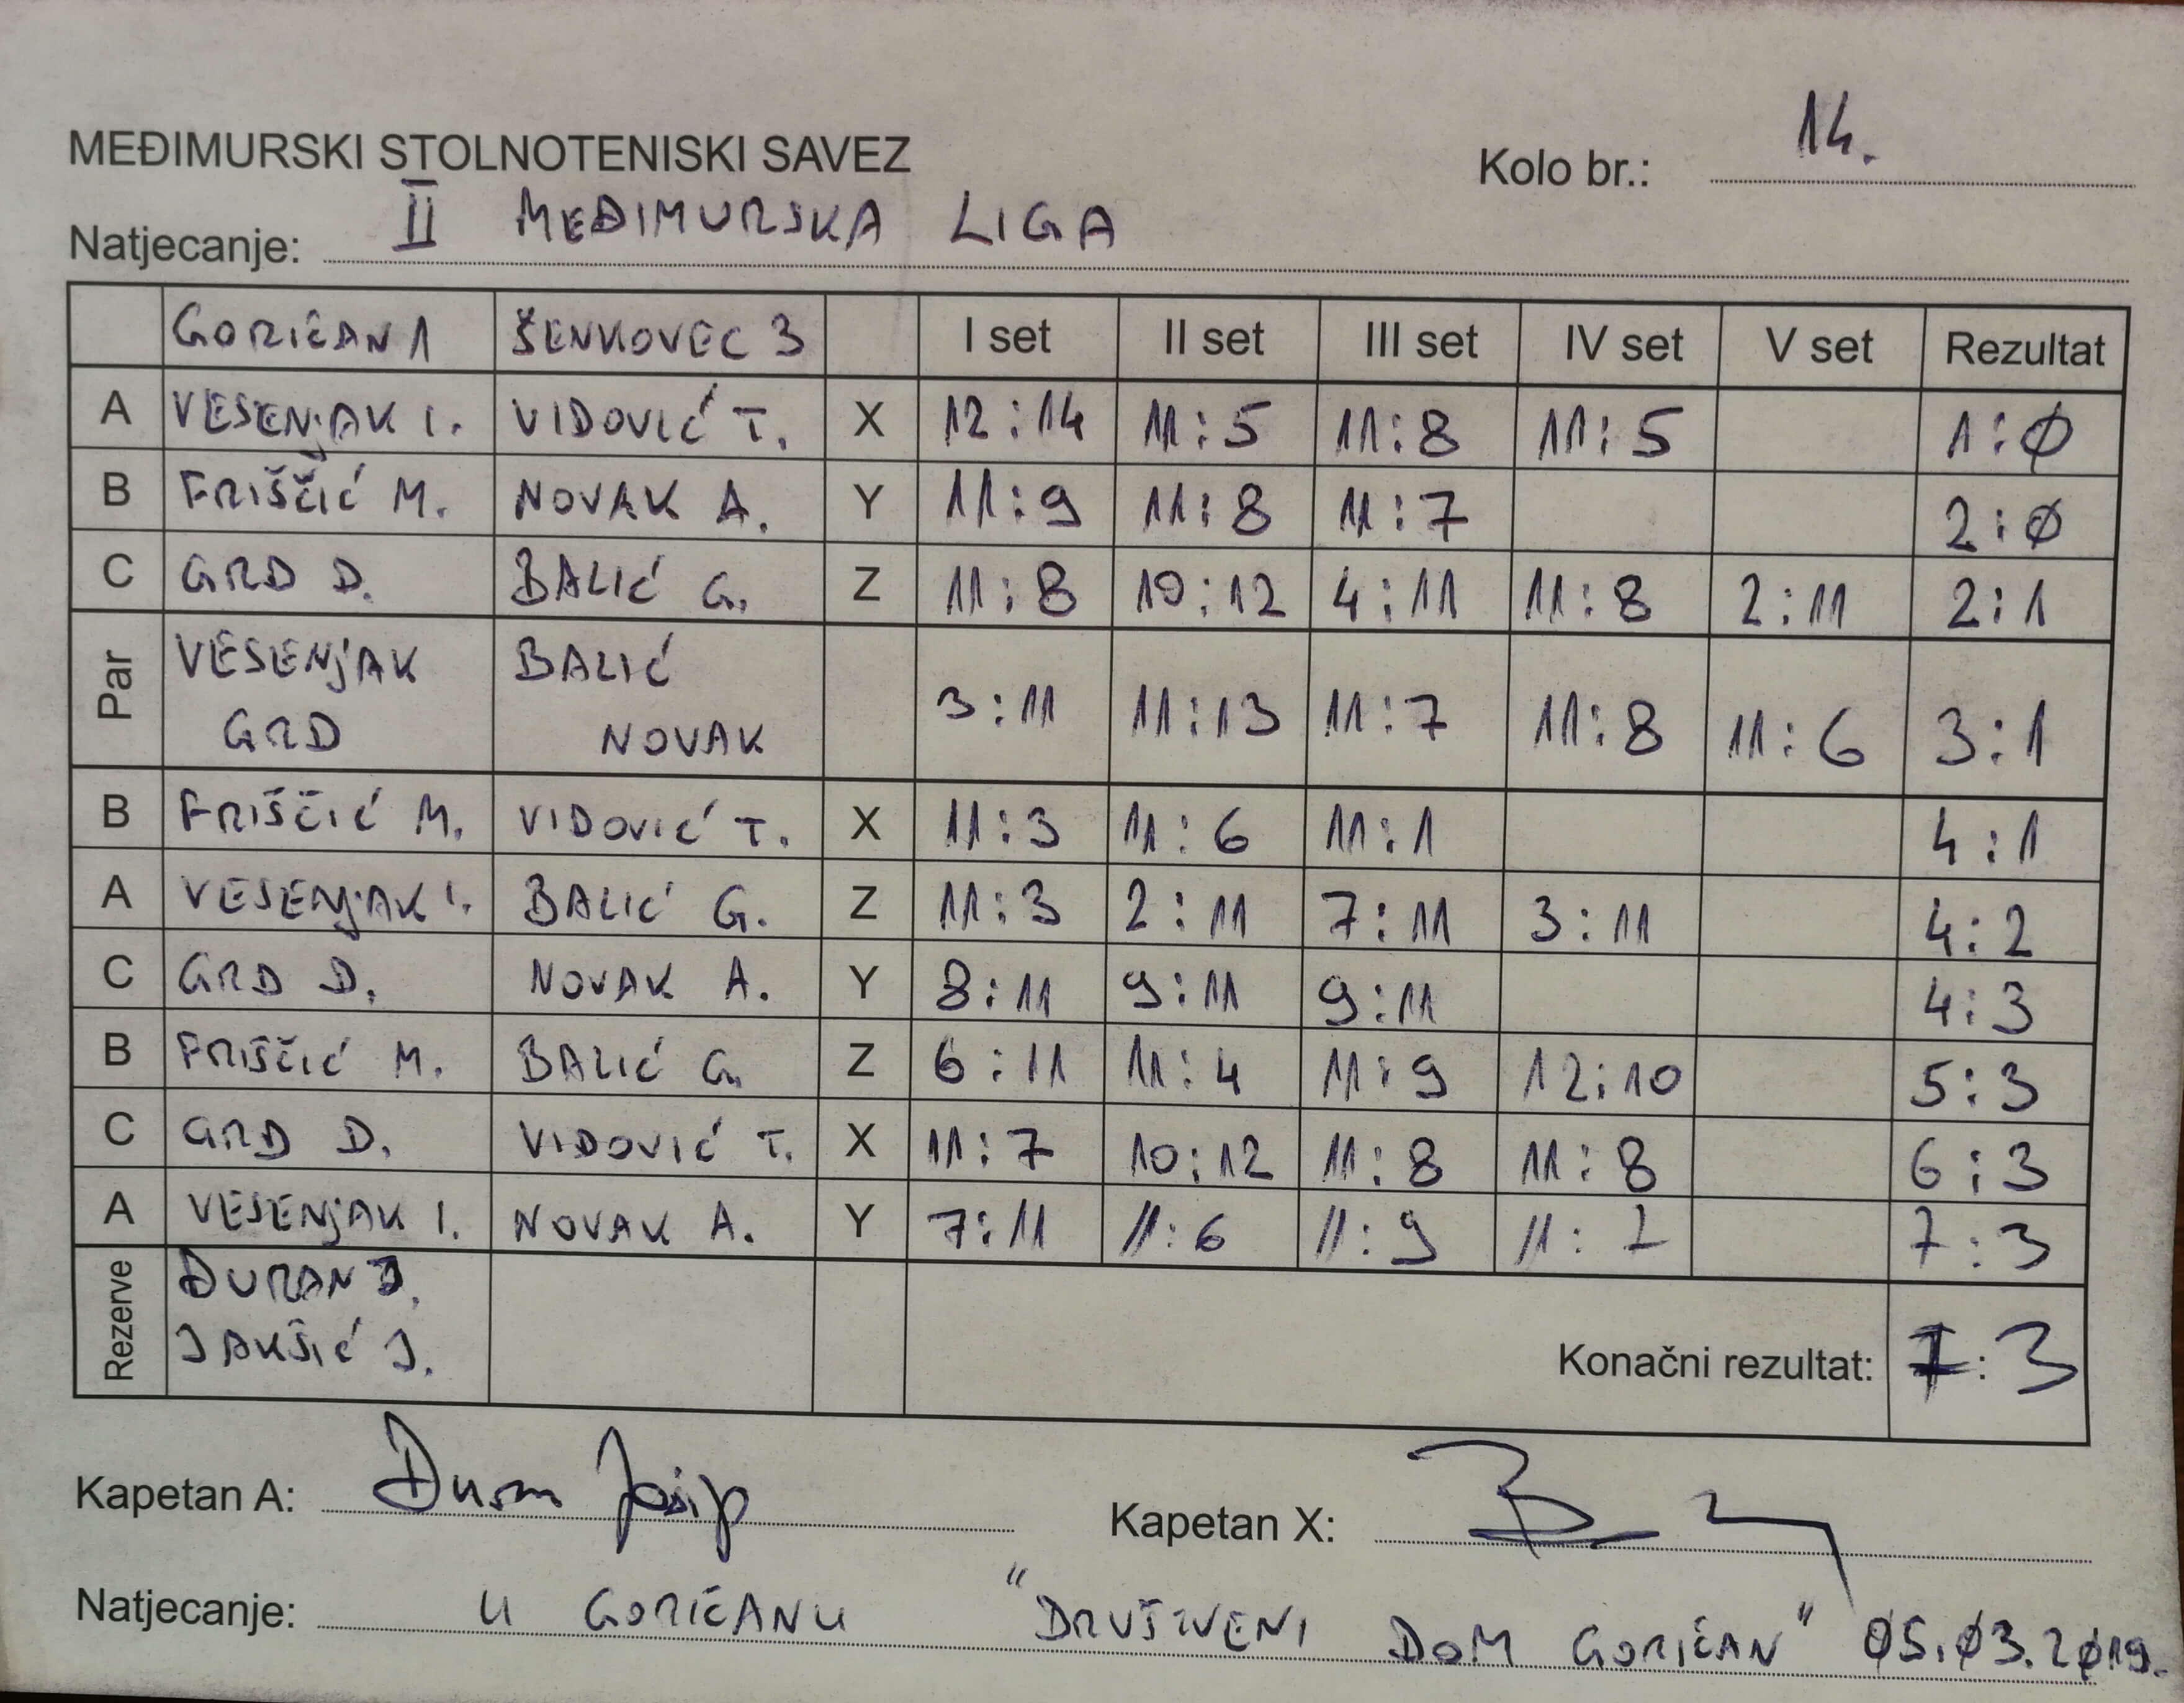 MEĐIMURSKI STOLNOTENISKI SAVEZ Kolo br.: 14.
Natjecanje: II MEĐIMURSKA LIGA
GORIČAN 1 ŠENKOVEC 3 I set II set III set IV set V set Rezultat
A VESENJAK I. VIDOVIĆ T. X 12:14 11:5 11:8 11:5 1:0
B FRIŠČIĆ M. NOVAK A. Y 11:9 11:8 11:7 2:0
C GRD D. BALIĆ G. Z 11:8 10:12 4:11 11:8 2:11 2:1
Par VESENJAK GRD BALIĆ NOVAK 3:11 11:13 11:7 11:8 11:6 3:1
B FRIŠČIĆ M. VIDOVIĆ T. X 11:3 11:6 11:1 4:1
A VESENJAK I. BALIĆ G. Z 11:3 2:11 7:11 3:11 4:2
C GRD D. NOVAK A. Y 8:11 9:11 9:11 4:3
B FRIŠČIĆ M. BALIĆ G. Z 6:11 11:4 11:9 12:10 5:3
C GRD D. VIDOVIĆ T. X 11:7 10:12 11:8 11:8 6:3
A VESENJAK I. NOVAK A. Y 7:11 11:6 11:9 11: 7:3
Rezerve ĐURAN J.
JAKŠIĆ J. Konačni rezultat: 7:3
Kapetan A: Đuran Josip Kapetan X:
Natjecanje: U GORIČANU "DRUŠTVENI DOM GORIČAN" 05.03.2019.